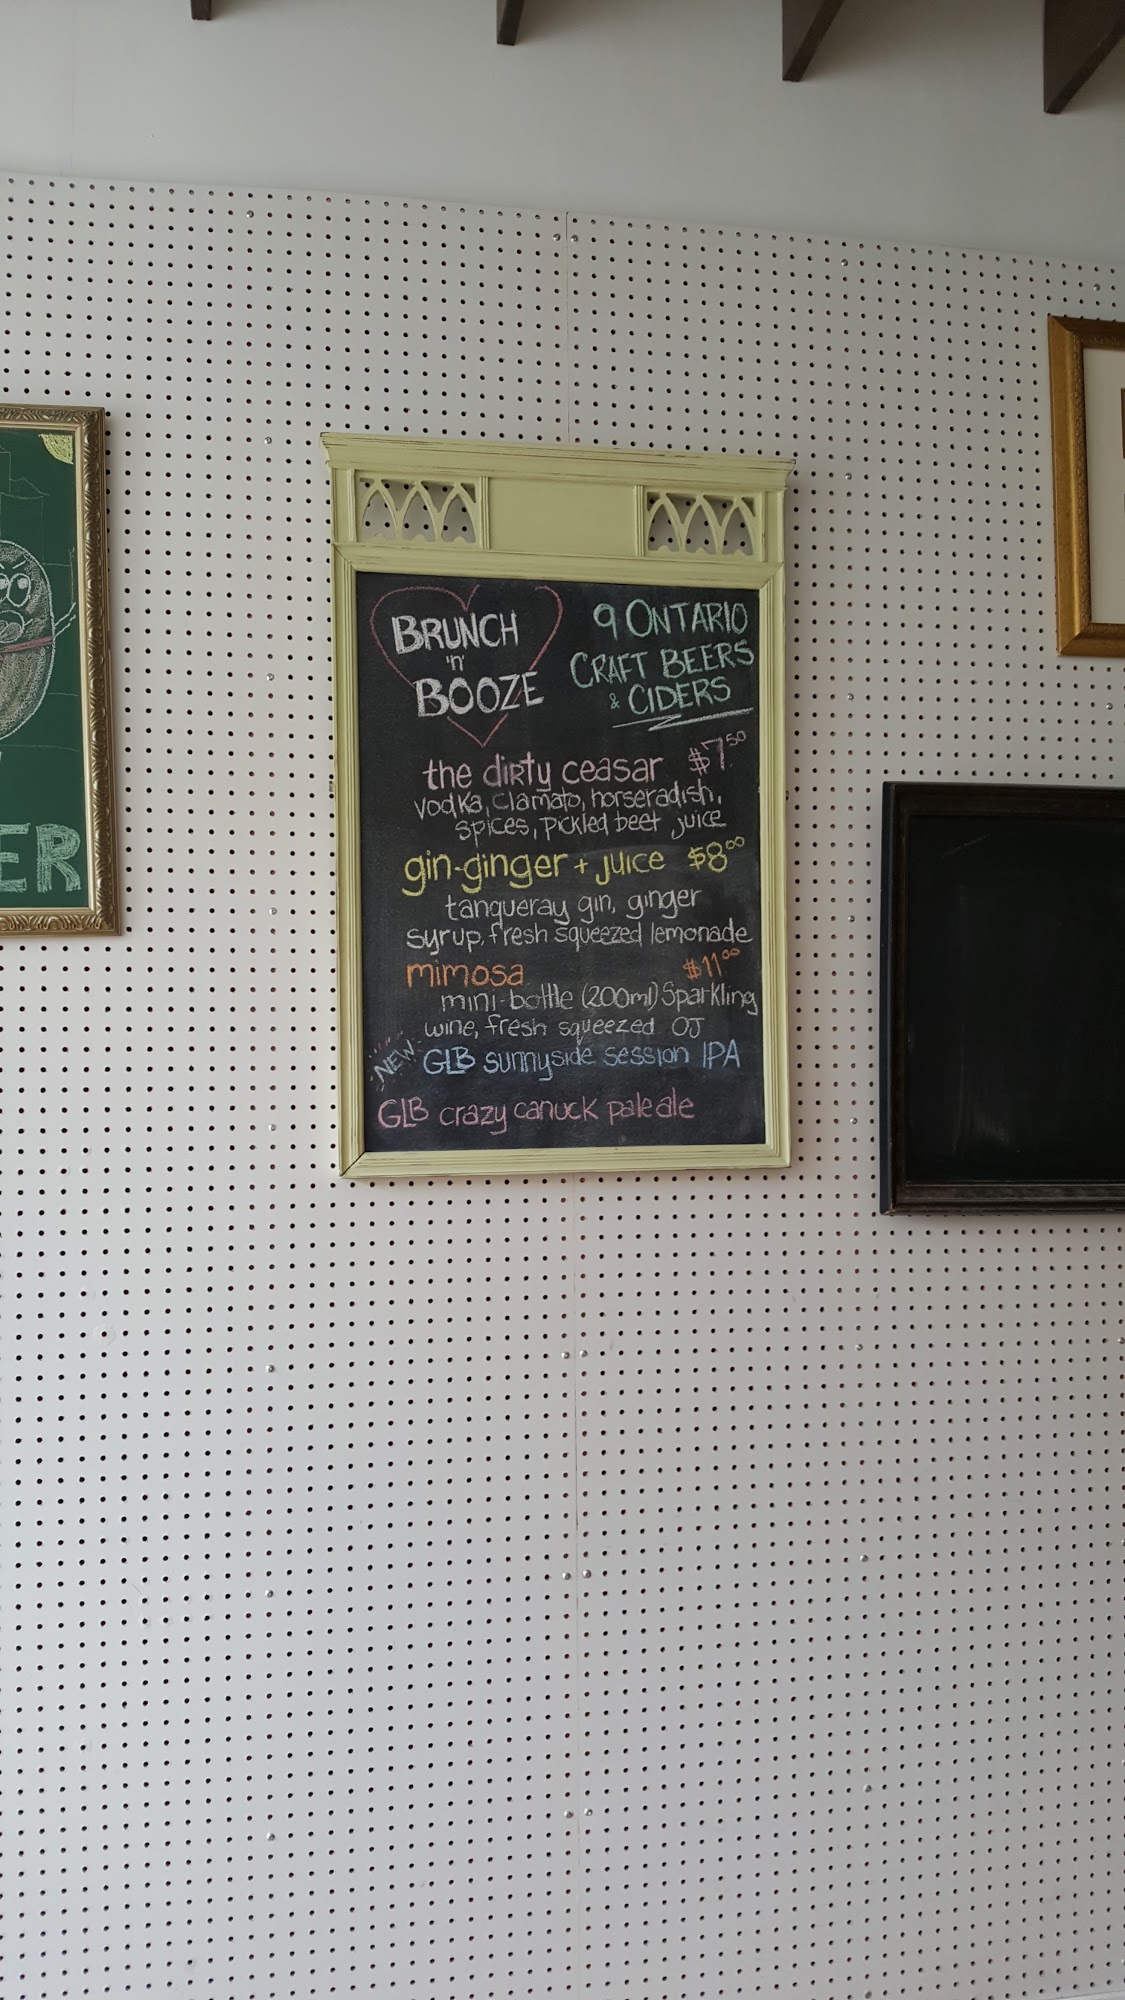 BRUNCH
'n'
BOOZE
9 ONTARIO
CRAFT BEERS
& CIDERS
the dirty ceasar $7.50
vodka, clamato, horseradish,
spices, pickled beet juice
gin-ginger + juice $8.00
tanqueray gin, ginger
syrup, fresh squeezed lemonade
mimosa $11.00
mini-bottle (200ml) Sparkling
wine, fresh squeezed OJ
NEW GLB sunnyside session IPA
GLB crazy canuck pale ale
ER